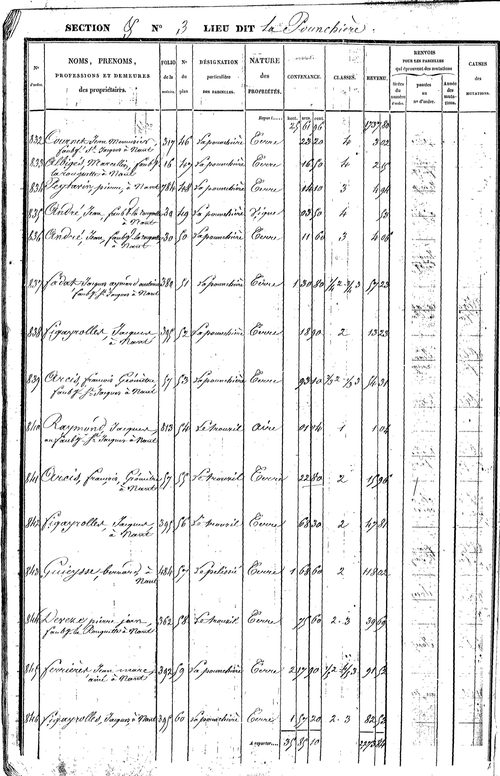 SECTION G N° 3 LIEU DIT La Pounchière
N° d'ordre.
NOMS, PRENOMS,
PROFESSIONS ET DEMEURES
des propriétaires.
FOLIO de la matrice.
N° du plan
DÉSIGNATION
particulière
DES PARCELLES.
NATURE
des
PROPRIÉTÉS.
CONTENANCE.
CLASSES.
REVENU.
RENVOIS
POUR LES PARCELLES
qui éprouvent des mutations
tirées du numéro d'ordre.
passées au n° d'ordre.
Année des mutations.
CAUSES
des
MUTATIONS.
hect. ares. cent.
Report 25 61 96 1737 80
832 Jean
faubg St Jacques à Naut 317 46 La pounchière Terre 23 20 4 3 02
833 Albigès, Marcellin, faubg
la rouquette à Naut 16 47 La pounchière Terre 16 50 4 2 15
834 Peytavin, pierre, à Naut 784 48 La pounchière Terre 14 10 3 4 94
835 André, Jean, faubg la rouquette
à Naut 30 49 La pounchière Vigne 03 50 4 53
836 André, Jean, faubg la rouquette
à Naut 30 50 La pounchière Terre 11 60 3 4 06
837 fadat, Jacques aymard
faubg St Jacques à Naut 380 51 La pounchière Terre 1 30 80 1/2 2 1/2 3 57 23
838 Figayrolles, Jacques,
à Naut 395 52 La pounchière Terre 18 90 2 13 23
839 Arcis, françois Géomètre,
faubg St Jacques à Naut 57 53 La pounchière Terre 93 10 2 3 54 31
840 Raymond, Jacques,
au faubg St Jacques à Naut 813 54 Le trouil aire 01 04 1 1 04
841 Arcis, françois, Géomètre
à Naut 57 55 Le trouil Terre 22 80 2 15 96
842 Figayrolles, Jacques,
à Naut 395 56 Le trouil Terre 68 30 2 47 81
843 Guieysse, bernard à
Naut 484 57 Terre 1 68 60 2 118 02
844 pierre jean,
faubg la Rouquette à Naut 362 58 Le trouil Terre 75 60 2. 3 39 69
845 ferrières, Jean marc
ainé à Naut 392 59 La pounchière Terre 2 17 90 2 3 91 52
846 Figayrolles, Jacques à Naut 395 60 La pounchière Terre 1 57 20 2. 3 82 53
A reporter 35 85 10 2273 84